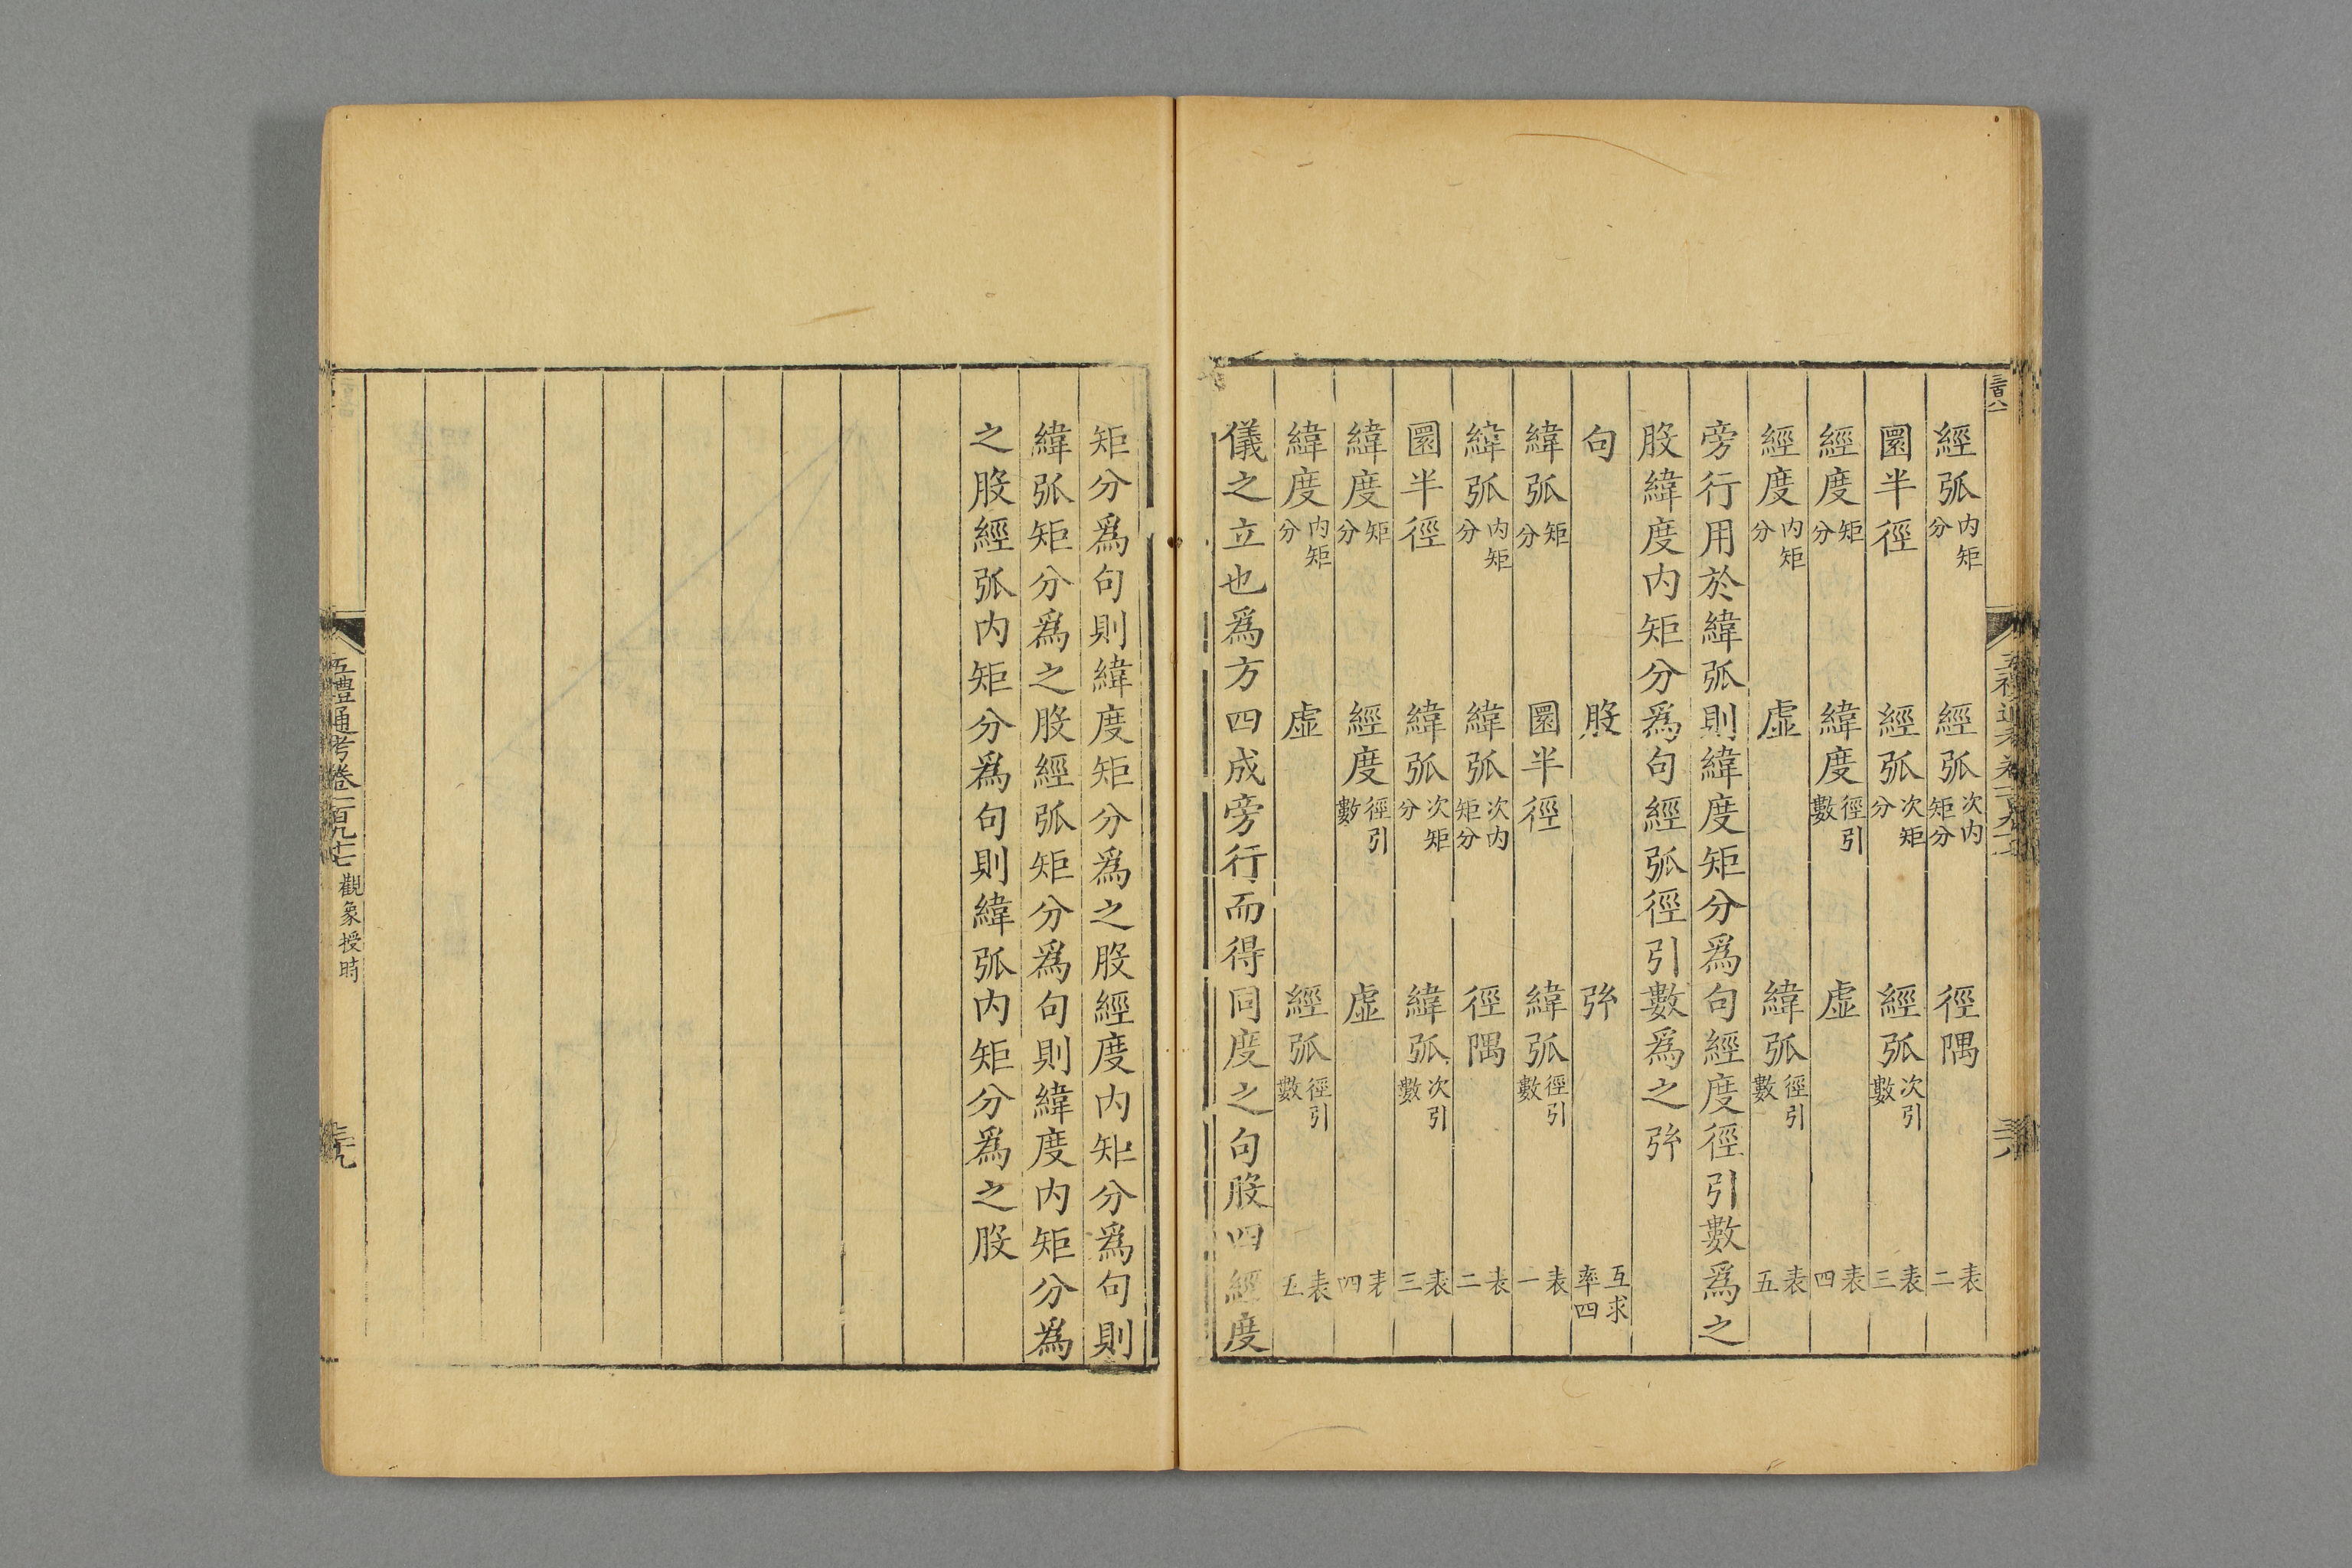 三百八
經弧内矩分　經弧次内矩分　徑隅　表二
圜半徑　經弧次矩分　經弧次引數　表三
經度矩分　緯度徑引數　虛　表四
經度内矩分　虛　緯弧徑引數　表五
旁行用於緯弧則緯度矩分爲句經度徑引數爲之
股緯度内矩分爲句經弧徑引數爲之弦
句　股　弦　互求率四
緯弧矩分　圜半徑　緯弧徑引數　表一
緯弧内矩分　緯弧次内矩分　徑隅　表二
圜半徑　緯弧次矩分　緯弧次引數　表三
緯度矩分　經度徑引數　虛　表四
緯度内矩分　虛　經弧徑引數　表五
儀之立也爲方四成旁行而得同度之句股四經度
矩分爲句則緯度矩分爲之股經度内矩分爲句則
緯弧矩分爲之股經弧矩分爲句則緯度内矩分爲
之股經弧内矩分爲句則緯弧内矩分爲之股
五禮通考卷一百九十七　觀象授時